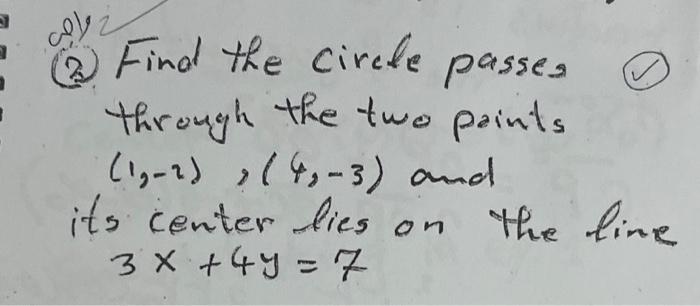 (2) Find the circle passes
through the two points
(1,-2) , (4,-3) and
its center lies on the line
3x + 4y = 7